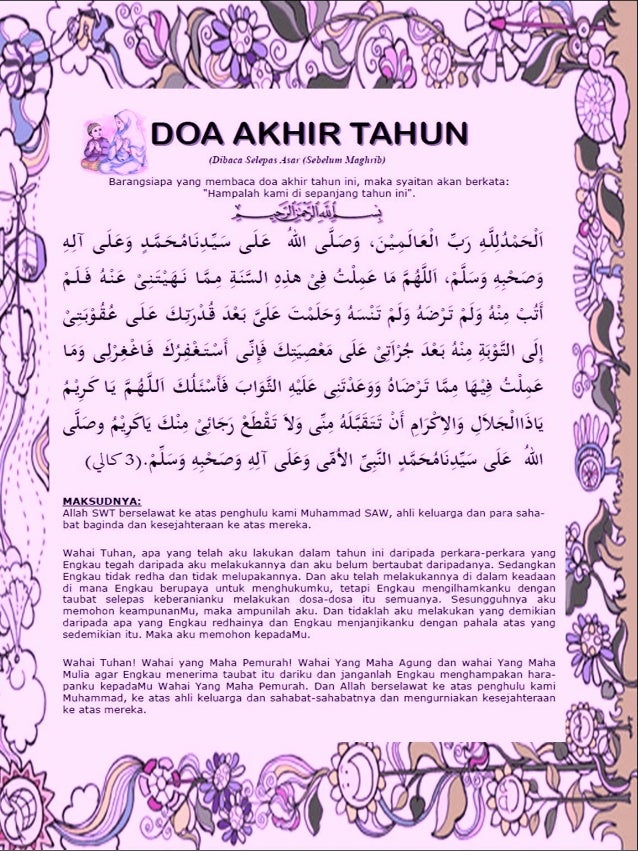 DOA AKHIR TAHUN
(Dibaca Selepas Asar (Sebelum Maghrib)
Barangsiapa yang membaca doa akhir tahun ini, maka syaitan akan berkata:
"Hampalah kami di sepanjang tahun ini".
بِسْمِ اللهِ الرَّحْمٰنِ الرَّحِيْمِ
اَلْحَمْدُلِلَّهِ رَبِّ الْعَالَمِيْنَ، وَصَلَّى اللهُ عَلَى سَيِّدِنَامُحَمَّدٍ وَعَلَى آلِهِ
وَصَحْبِهِ وَسَلَّمْ، اَللَّهُمَّ مَا عَمِلْتُ فِىْ هذِهِ السَّنَةِ مِمَّا نَهَيْتَنِىْ عَنْهُ فَلَمْ
أَتُبْ مِنْهُ وَلَمْ تَرْضَهُ وَلَمْ تَنْسَهُ وَحَلَمْتَ عَلَىَّ بَعْدَ قُدْرَتِكَ عَلَى عُقُوْبَتِىْ
إِلَى التَّوْبَةِ مِنْهُ بَعْدَ جُرْآتِىْ عَلَى مَعْصِيَتِكَ فَإِنِّى أَسْتَغْفِرُكَ فَاغْفِرْلِى وَمَا
عَمِلْتُ فِيْهَا مِمَّا تَرْضَاهُ وَوَعَدْتَنِى عَلَيْهِ الثَّوَابَ فَأَسْئَلُكَ اَللَّهُمَّ يَا كَرِيْمُ
يَاذَاالْجَلاَلِ وَالاِكْرَامِ أَنْ تَتَقَبَّلَهُ مِنِّى وَلاَ تَقْطَعْ رَجَائِىْ مِنْكَ يَاكَرِيْمُ وصَلَّى
اللهُ عَلَى سَيِّدِنَامُحَمَّدٍ النَّبِىِّ الأُمِّى وَعَلَى آلِهِ وَصَحْبِهِ وَسَلِّمْ.(3 كالي)
MAKSUDNYA:
Allah SWT berselawat ke atas penghulu kami Muhammad SAW, ahli keluarga dan para saha-
bat baginda dan kesejahteraan ke atas mereka.
Wahai Tuhan, apa yang telah aku lakukan dalam tahun ini daripada perkara-perkara yang
Engkau tegah daripada aku melakukannya dan aku belum bertaubat daripadanya. Sedangkan
Engkau tidak redha dan tidak melupakannya. Dan aku telah melakukannya di dalam keadaan
di mana Engkau berupaya untuk menghukumku, tetapi Engkau mengilhamkanku dengan
taubat selepas keberanianku melakukan dosa-dosa itu semuanya. Sesungguhnya aku
memohon keampunanMu, maka ampunilah aku. Dan tidaklah aku melakukan yang demikian
daripada apa yang Engkau redhainya dan Engkau menjanjikanku dengan pahala atas yang
sedemikian itu. Maka aku memohon kepadaMu.
Wahai Tuhan! Wahai yang Maha Pemurah! Wahai Yang Maha Agung dan wahai Yang Maha
Mulia agar Engkau menerima taubat itu dariku dan janganlah Engkau menghampakan hara-
panku kepadaMu Wahai Yang Maha Pemurah. Dan Allah berselawat ke atas penghulu kami
Muhammad, ke atas ahli keluarga dan sahabat-sahabatnya dan mengurniakan kesejahteraan
ke atas mereka.